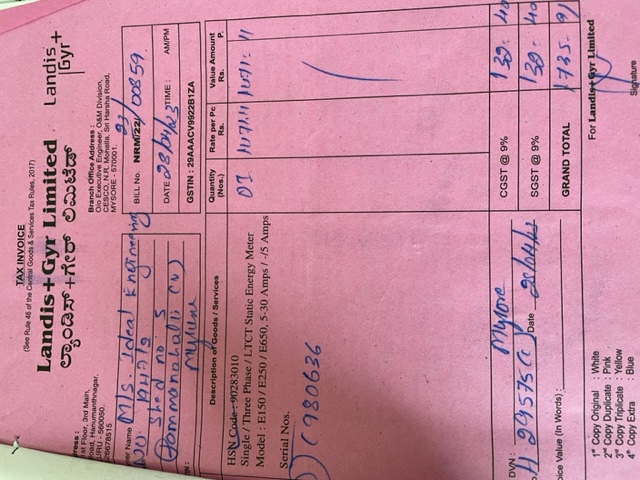 TAX INVOICE
(See Rule 46 of the Central Goods & Services Tax Rules, 2017)
Landis+Gyr Limited
ಲ್ಯಾಂಡಿಸ್ +ಗೇರ್ ಲಿಮಿಟೆಡ್
Landis
Gyr+
1st Floor, 3rd Main,
Hanumanthnagar,
560050.
Branch Office Address :
O/o Executive Engineer, O&M Division,
CESCO, N.R. Mohalla, Sri Harsha Road,
MYSORE - 570001.
Name M/s. Ideal Engineering
Shed no 5
Mysore
BILL No. NRM/22/ 23/ 00859
DATE 28/04/23 TIME : AM/PM
GSTIN : 29AAACV9922B1ZA
Description of Goods / Services
Quantity (Nos.)
Rate per Pc Rs.
Value Amount Rs. P.
HSN Code : 90283010
Single / Three Phase / LTCT Static Energy Meter
Model : E150 / E250 / E650, 5-30 Amps / -/5 Amps
01
Serial Nos.
CGST @ 9% 139 - 40
SGST @ 9% 139 - 40
GRAND TOTAL 1735 - 91
DVN : Mysore
Date
Value (In Words) :
For Landis+Gyr Limited
Signature
1st Copy Original : White
2nd Copy Duplicate : Pink
3rd Copy Triplicate : Yellow
4th Copy Extra : Blue